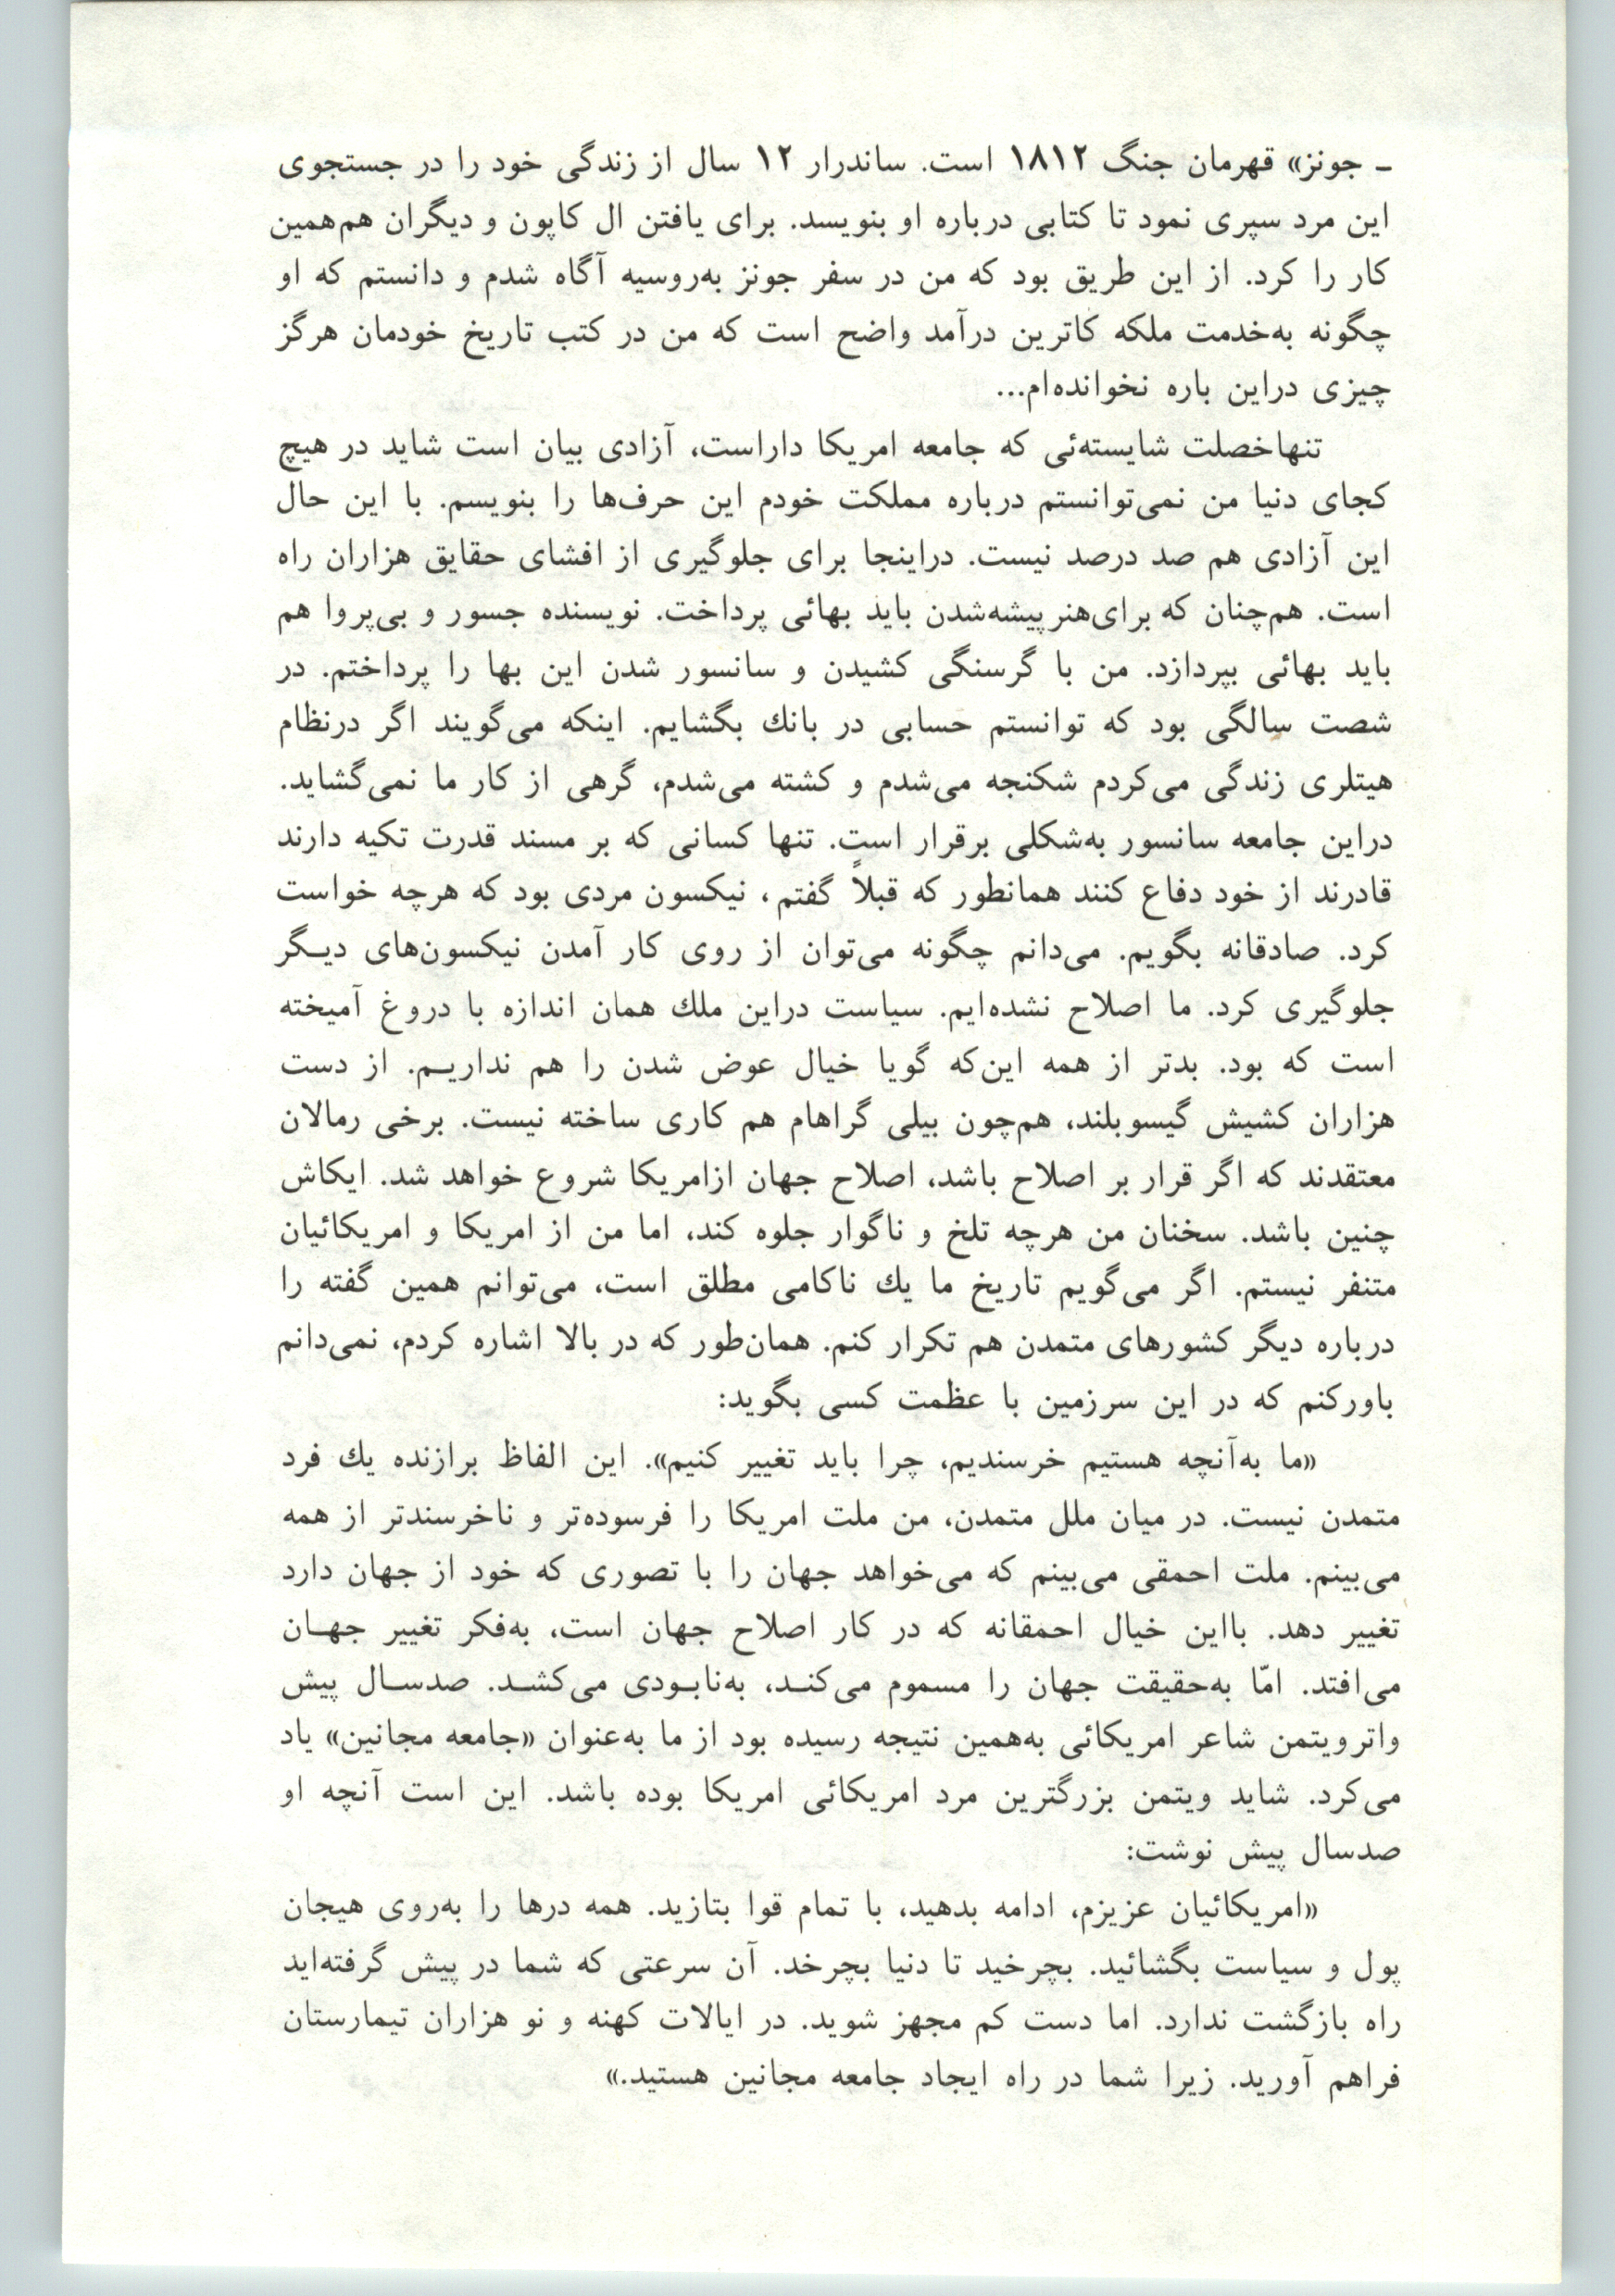 ـ جونز» قهرمان جنگ ۱۸۱۲ است. ساندرار ۱۲ سال از زندگی خود را در جستجوی
این مرد سپری نمود تا کتابی درباره او بنویسد. برای یافتن ال کاپون و دیگران هم‌همین
کار را کرد. از این طریق بود که من در سفر جونز به‌روسیه آگاه شدم و دانستم که او
چگونه به‌خدمت ملکه کاترین درآمد واضح است که من در کتب تاریخ خودمان هرگز
چیزی دراین باره نخوانده‌ام...
تنهاخصلت شایسته‌ئی که جامعه امریکا داراست، آزادی بیان است شاید در هیچ
کجای دنیا من نمی‌توانستم درباره مملکت خودم این حرف‌ها را بنویسم. با این حال
این آزادی هم صد درصد نیست. دراینجا برای جلوگیری از افشای حقایق هزاران راه
است. هم‌چنان که برای‌هنرپیشه‌شدن باید بهائی پرداخت. نویسنده جسور و بی‌پروا هم
باید بهائی بپردازد. من با گرسنگی کشیدن و سانسور شدن این بها را پرداختم. در
شصت سالگی بود که توانستم حسابی در بانك بگشایم. اینکه می‌گویند اگر درنظام
هیتلری زندگی می‌کردم شکنجه می‌شدم و کشته می‌شدم، گرهی از کار ما نمی‌گشاید.
دراین جامعه سانسور به‌شکلی برقرار است. تنها کسانی که بر مسند قدرت تکیه دارند
قادرند از خود دفاع کنند همانطور که قبلاً گفتم، نیکسون مردی بود که هرچه خواست
کرد. صادقانه بگویم. می‌دانم چگونه می‌توان از روی کار آمدن نیکسون‌های دیـگر
جلوگیری کرد. ما اصلاح نشده‌ایم. سیاست دراین ملك همان اندازه با دروغ آمیخته
است که بود. بدتر از همه این‌که گویا خیال عوض شدن را هم نداریـم. از دست
هزاران کشیش گیسوبلند، هم‌چون بیلی گراهام هم کاری ساخته نیست. برخی رمالان
معتقدند که اگر قرار بر اصلاح باشد، اصلاح جهان ازامریکا شروع خواهد شد. ایکاش
چنین باشد. سخنان من هرچه تلخ و ناگوار جلوه کند، اما من از امریکا و امریکائیان
متنفر نیستم. اگر می‌گویم تاریخ ما یك ناکامی مطلق است، می‌توانم همین گفته را
درباره دیگر کشورهای متمدن هم تکرار کنم. همان‌طور که در بالا اشاره کردم، نمی‌دانم
باورکنم که در این سرزمین با عظمت کسی بگوید:
«ما به‌آنچه هستیم خرسندیم، چرا باید تغییر کنیم». این الفاظ برازنده یك فرد
متمدن نیست. در میان ملل متمدن، من ملت امریکا را فرسوده‌تر و ناخرسندتر از همه
می‌بینم. ملت احمقی می‌بینم که می‌خواهد جهان را با تصوری که خود از جهان دارد
تغییر دهد. بااین خیال احمقانه که در کار اصلاح جهان است، به‌فکر تغییر جهـان
می‌افتد. امّا به‌حقیقت جهان را مسموم می‌کنـد، به‌نابـودی می‌کشـد. صدسـال پیش
واترویتمن شاعر امریکائی به‌همین نتیجه رسیده بود از ما به‌عنوان «جامعه مجانین» یاد
می‌کرد. شاید ویتمن بزرگترین مرد امریکائی امریکا بوده باشد. این است آنچه او
صدسال پیش نوشت:
«امریکائیان عزیزم، ادامه بدهید، با تمام قوا بتازید. همه درها را به‌روی هیجان
پول و سیاست بگشائید. بچرخید تا دنیا بچرخد. آن سرعتی که شما در پیش گرفته‌اید
راه بازگشت ندارد. اما دست کم مجهز شوید. در ایالات کهنه و نو هزاران تیمارستان
فراهم آورید. زیرا شما در راه ایجاد جامعه مجانین هستید.»